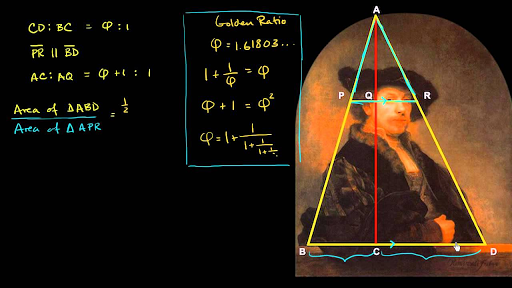 CD : BC = φ : 1
PR || BD
AC : AQ = φ+1 : 1
Area of △ABD
Area of △APR
= 1/2
Golden Ratio
φ = 1.61803...
1 + 1/φ = φ
φ + 1 = φ²
φ = 1 + 1/(1 + 1/(1 + 1/...
A
P
Q
R
B
C
D